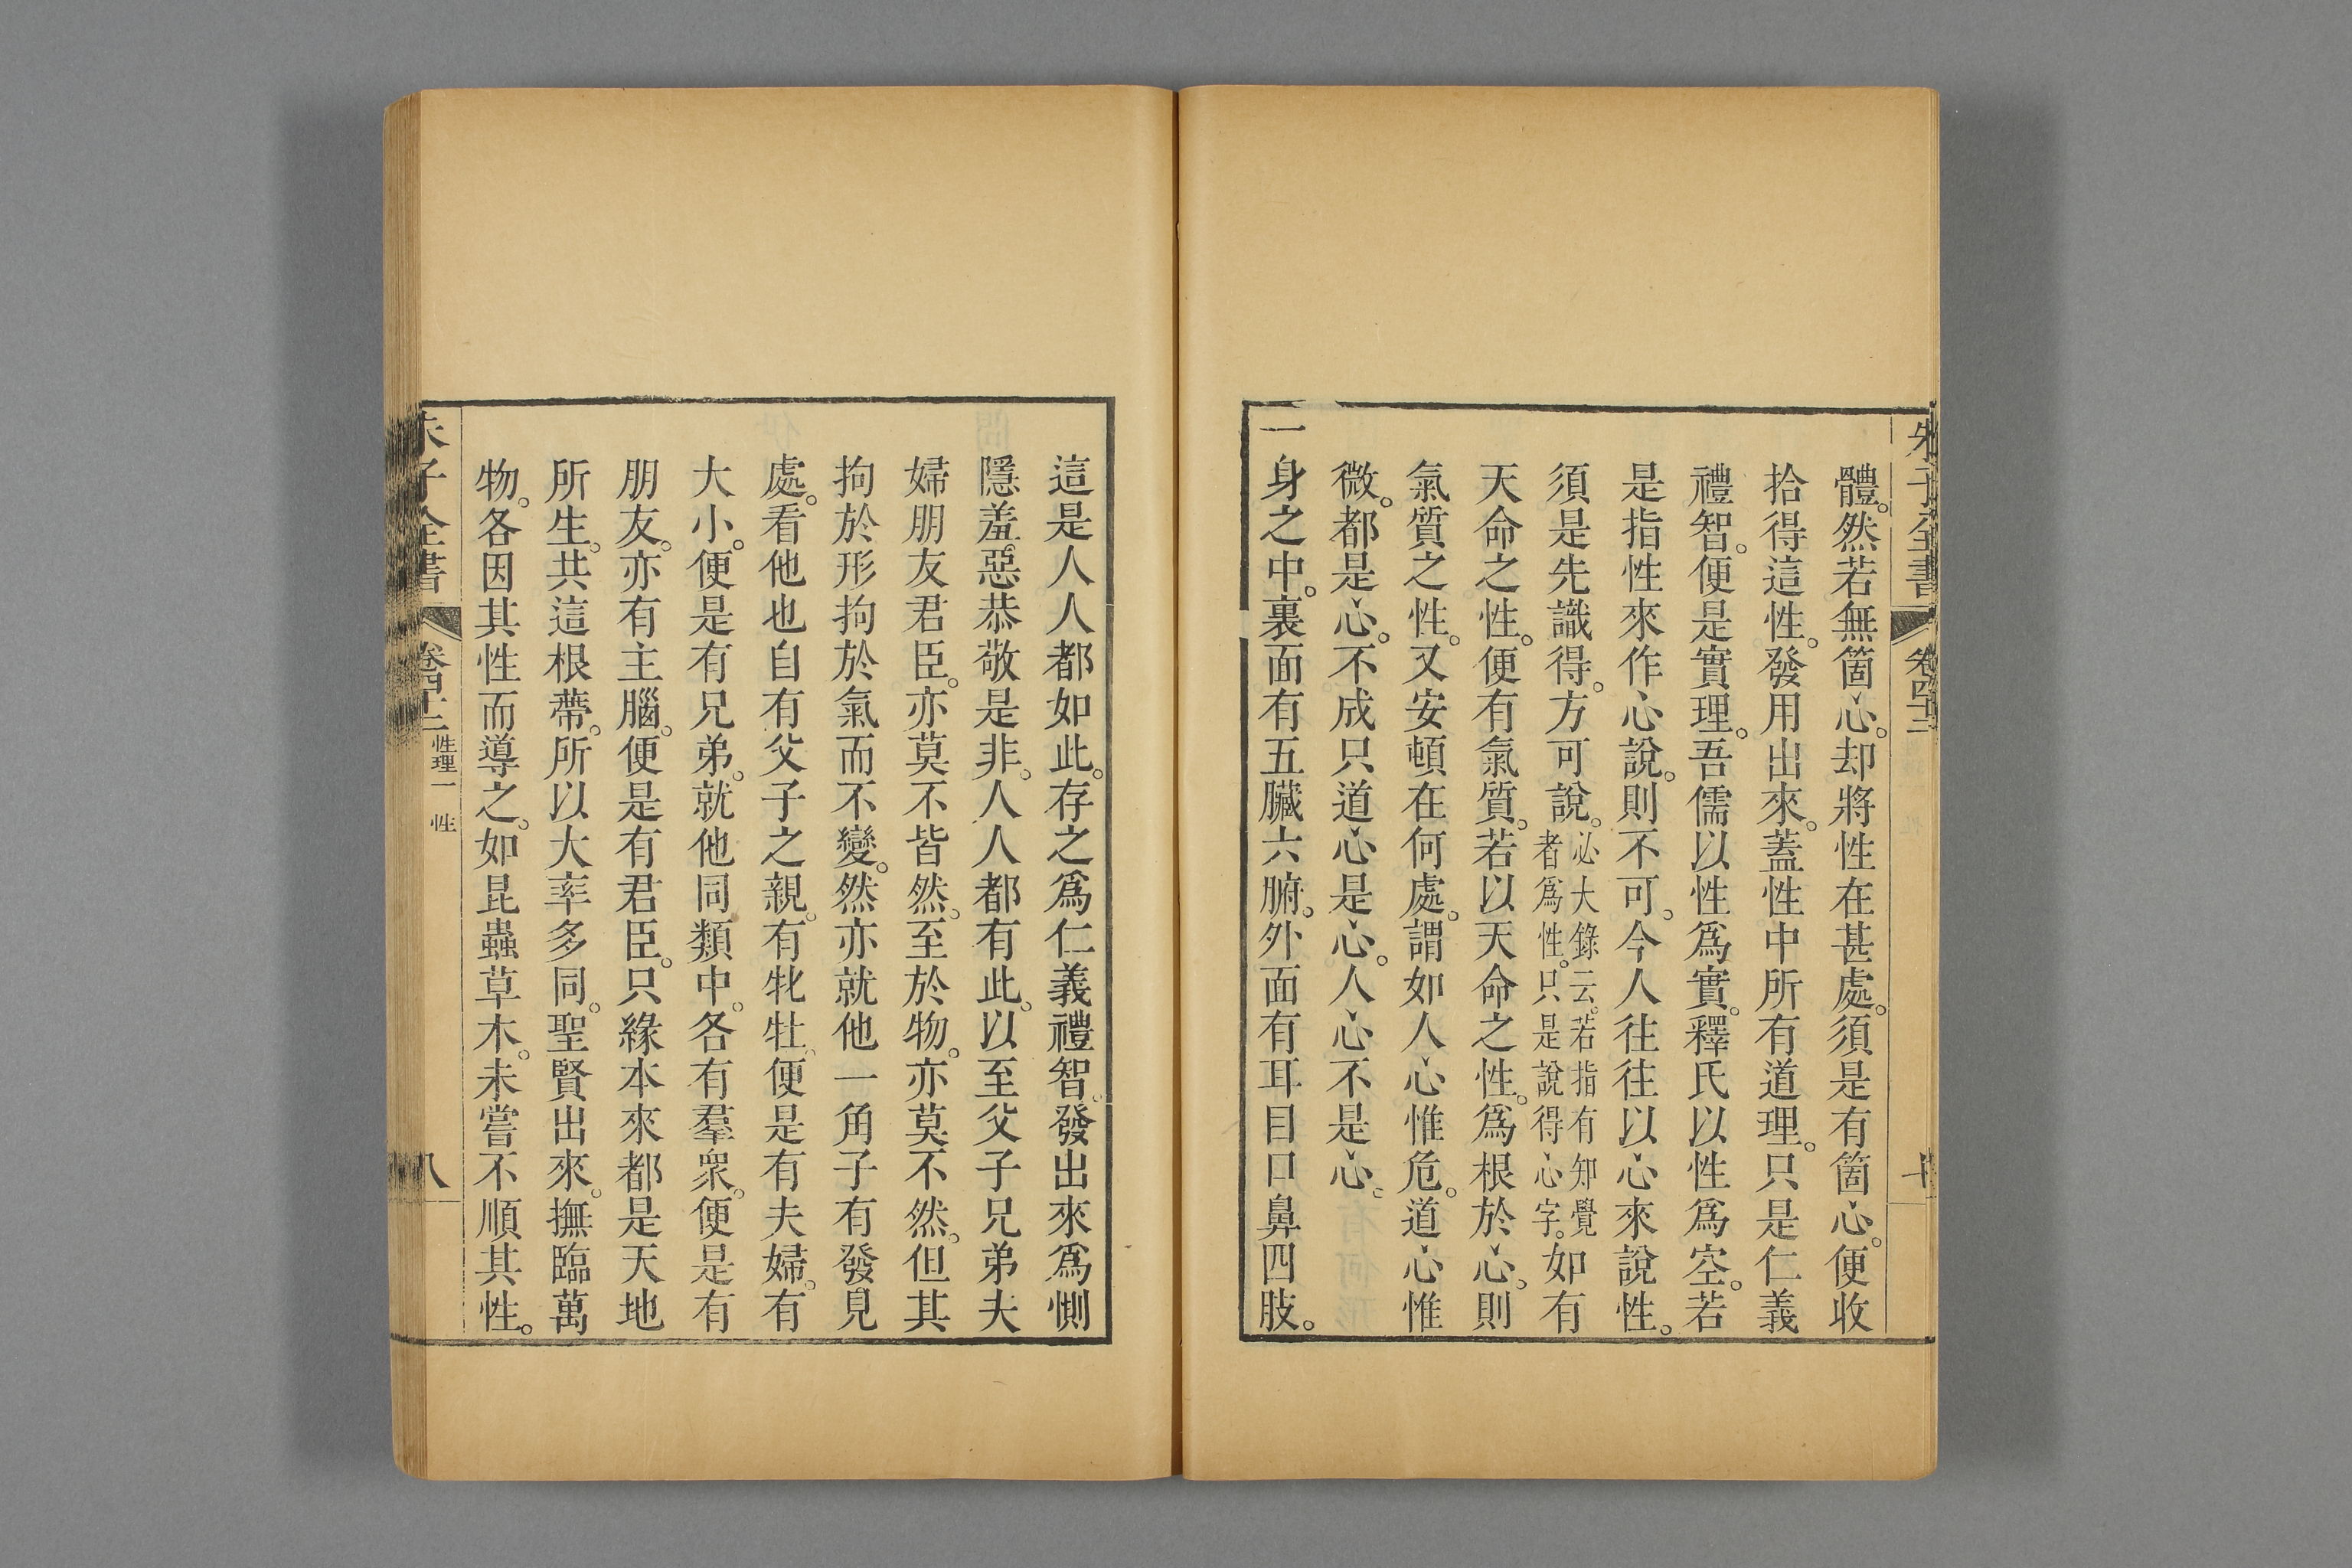 朱子全書 卷四十二 十
體。然若無箇心。却將性在甚處。須是有箇心。便收
拾得這性。發用出來。蓋性中所有道理。只是仁義
禮智。便是實理。吾儒以性爲實。釋氏以性爲空。若
是指性來作心說。則不可。今人往往以心來說性。
須是先識得。方可說。必大錄云。若指有知覺者爲性。只是說得心字。如有
天命之性。便有氣質。若以天命之性。爲根於心。則
氣質之性。又安頓在何處。謂如人心惟危。道心惟
微。都是心。不成只道心是心。人心不是心。
一身之中。裏面有五臟六腑。外面有耳目口鼻四肢。
這是人人都如此。存之爲仁義禮智。發出來爲惻
隱羞惡恭敬是非。人人都有此。以至父子兄弟夫
婦朋友君臣。亦莫不皆然。至於物。亦莫不然。但其
拘於形拘於氣而不變。然亦就他一角子有發見
處。看他也自有父子之親。有牝牡。便是有夫婦。有
大小。便是有兄弟。就他同類中。各有羣衆。便是有
朋友。亦有主腦。便是有君臣。只緣本來都是天地
所生。共這根蔕。所以大率多同。聖賢出來。撫臨萬
物。各因其性而導之。如昆蟲草木。未嘗不順其性。
朱子全書 卷四十二 性理一 性 八